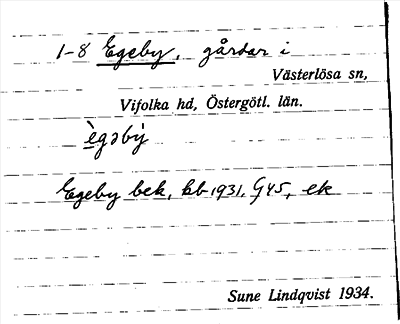 1-8 Egeby, gårdar i
Västerlösa sn,
Vifolka hd, Östergötl. län.
ègəbẏ
Egeby bek, kb 1931, G45, ek
Sune Lindqvist 1934.